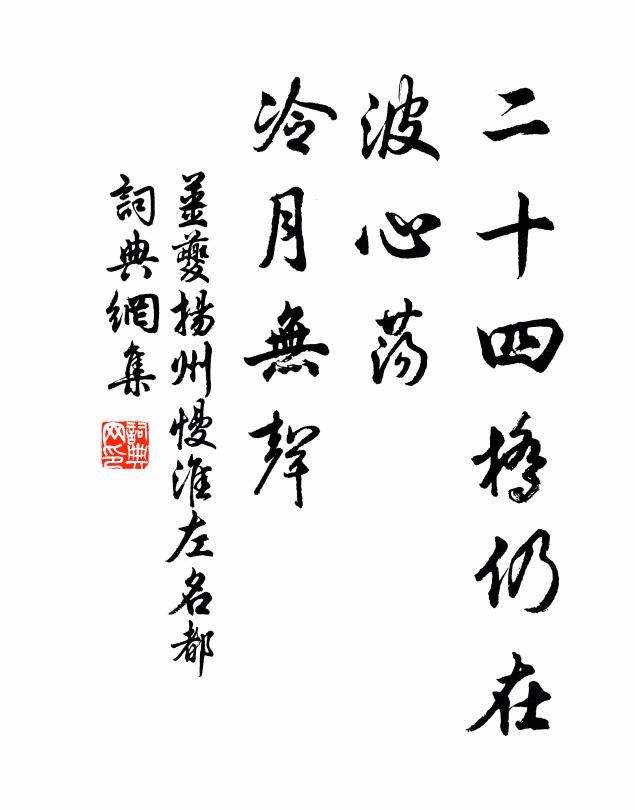 二十四橋仍在
波心蕩
冷月無聲
姜夔揚州慢淮左名都
詞典網集
詞典网印